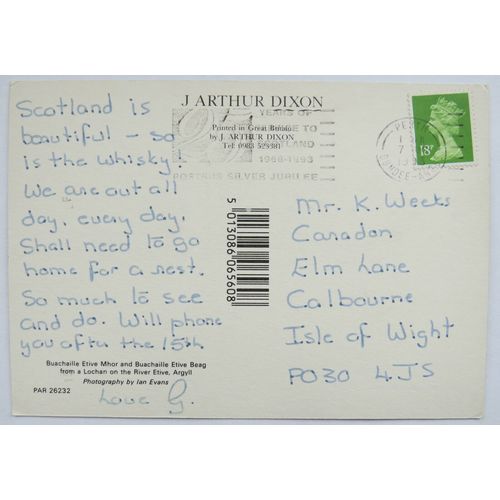 Scotland is
beautiful – so
is the whisky!
We are out all
day, every day.
Shall need to go
home for a rest.
So much to see
and do. Will phone
you after the 15th
Love G.
J ARTHUR DIXON
Printed in Great Britain
by J. ARTHUR DIXON
Tel: 0983 523381
YEARS OF
TO
1968-1993
POSTBUS SILVER JUBILEE
18P
DUNDEE
5 013086 065608
Mr. K. Weeks
Caradon
Elm Lane
Calbourne
Isle of Wight
PO30 4JS
Buachaille Etive Mhor and Buachaille Etive Beag
from a Lochan on the River Etive, Argyll
Photography by Ian Evans
PAR 26232